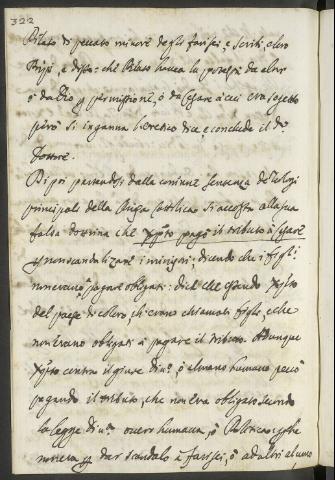 322
Pilato di peccato minore degli farisei, e Scribi, che
e disse: che Pilato havea la potestà da
ò da Dio per permissione, ò da Cesare à cui era sogetto
però si inganna l'heretico dice, e conclude il d.
Dottore.
Di poi partendosi dalla comune sentenza de Teologi
principali della Chiesa Cattolica si accosta alla sua
falsa dottrina che Xpto pagò il tributo à Cesare
per non scandalizare i minori; dicendo che i figli
non erano pagare obligati: dice che essendo Xpto
del paese di coloro, che erano chiamati figli, e che
non erano obligati à pagare il tributo. Adunque
Xpto contra il giure divo, ò almeno humano peccò
pagando il tributo, che non era obligato secondo
la legge diva overo humana, ò Politica: e che
non era per dar scandalo à farisei, ò ad altri alcuno